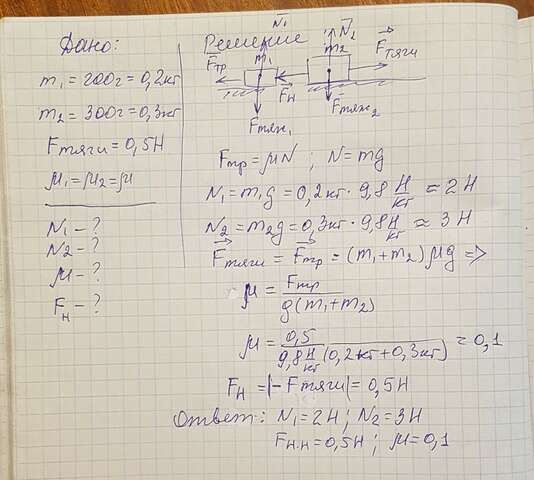 Дано:
m₁ = 200г = 0,2кг
m₂ = 300г = 0,3кг
Fтяги = 0,5Н
μ₁ = μ₂ = μ
N₁ - ?
N₂ - ?
μ - ?
Fн - ?
Решение
N₁
N₂
m₁
m₂
Fтр
Fтяги
Fн
Fтяж₁
Fтяж₂
Fтр = μN ; N = mg
N₁ = m₁g = 0,2кг · 9,8 Н/кг ≈ 2Н
N₂ = m₂g = 0,3кг · 9,8 Н/кг ≈ 3Н
Fтяги = Fтр = (m₁ + m₂) μg =>
μ = Fтр / g(m₁ + m₂)
μ = 0,5 / 9,8 Н/кг (0,2кг + 0,3кг) = 0,1
Fн = |-Fтяги| = 0,5Н
Ответ: N₁ = 2Н ; N₂ = 3Н
Fн.н = 0,5Н ; μ = 0,1